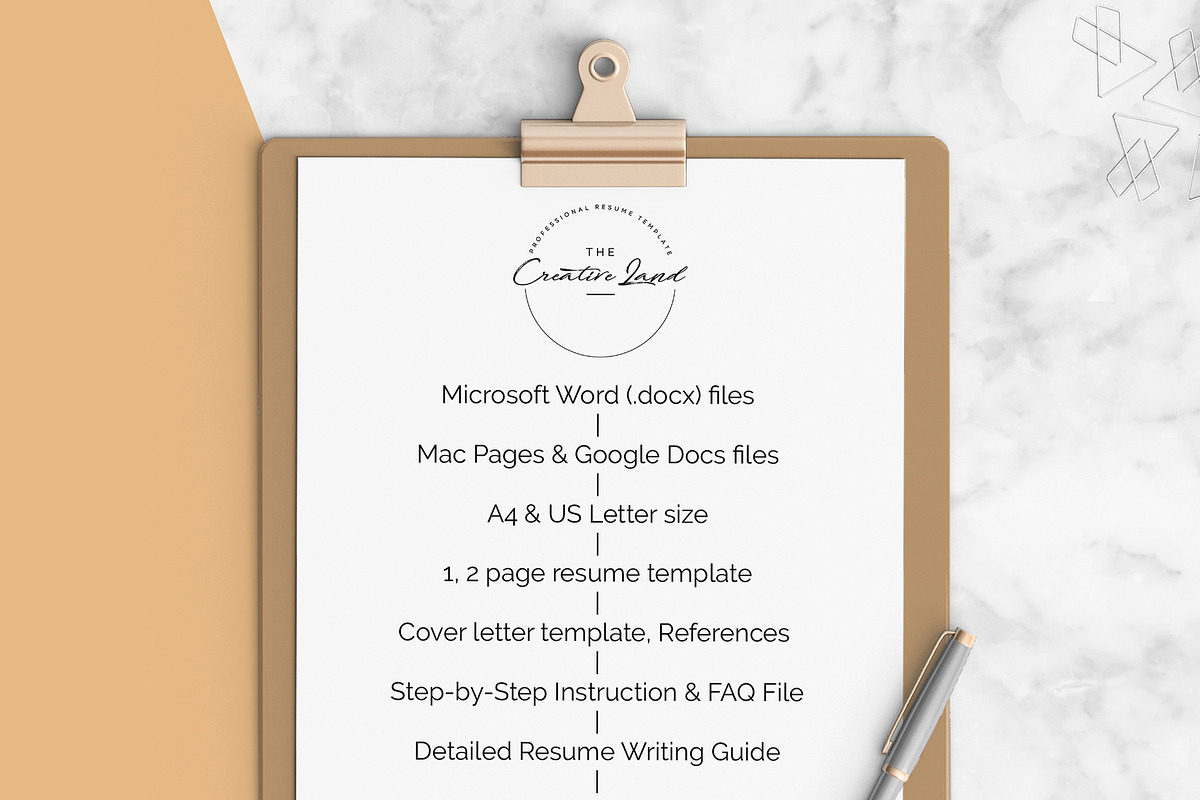 PROFESSIONAL RESUME TEMPLATE
THE
Creative Land
Microsoft Word (.docx) files
Mac Pages & Google Docs files
A4 & US Letter size
1, 2 page resume template
Cover letter template, References
Step-by-Step Instruction & FAQ File
Detailed Resume Writing Guide